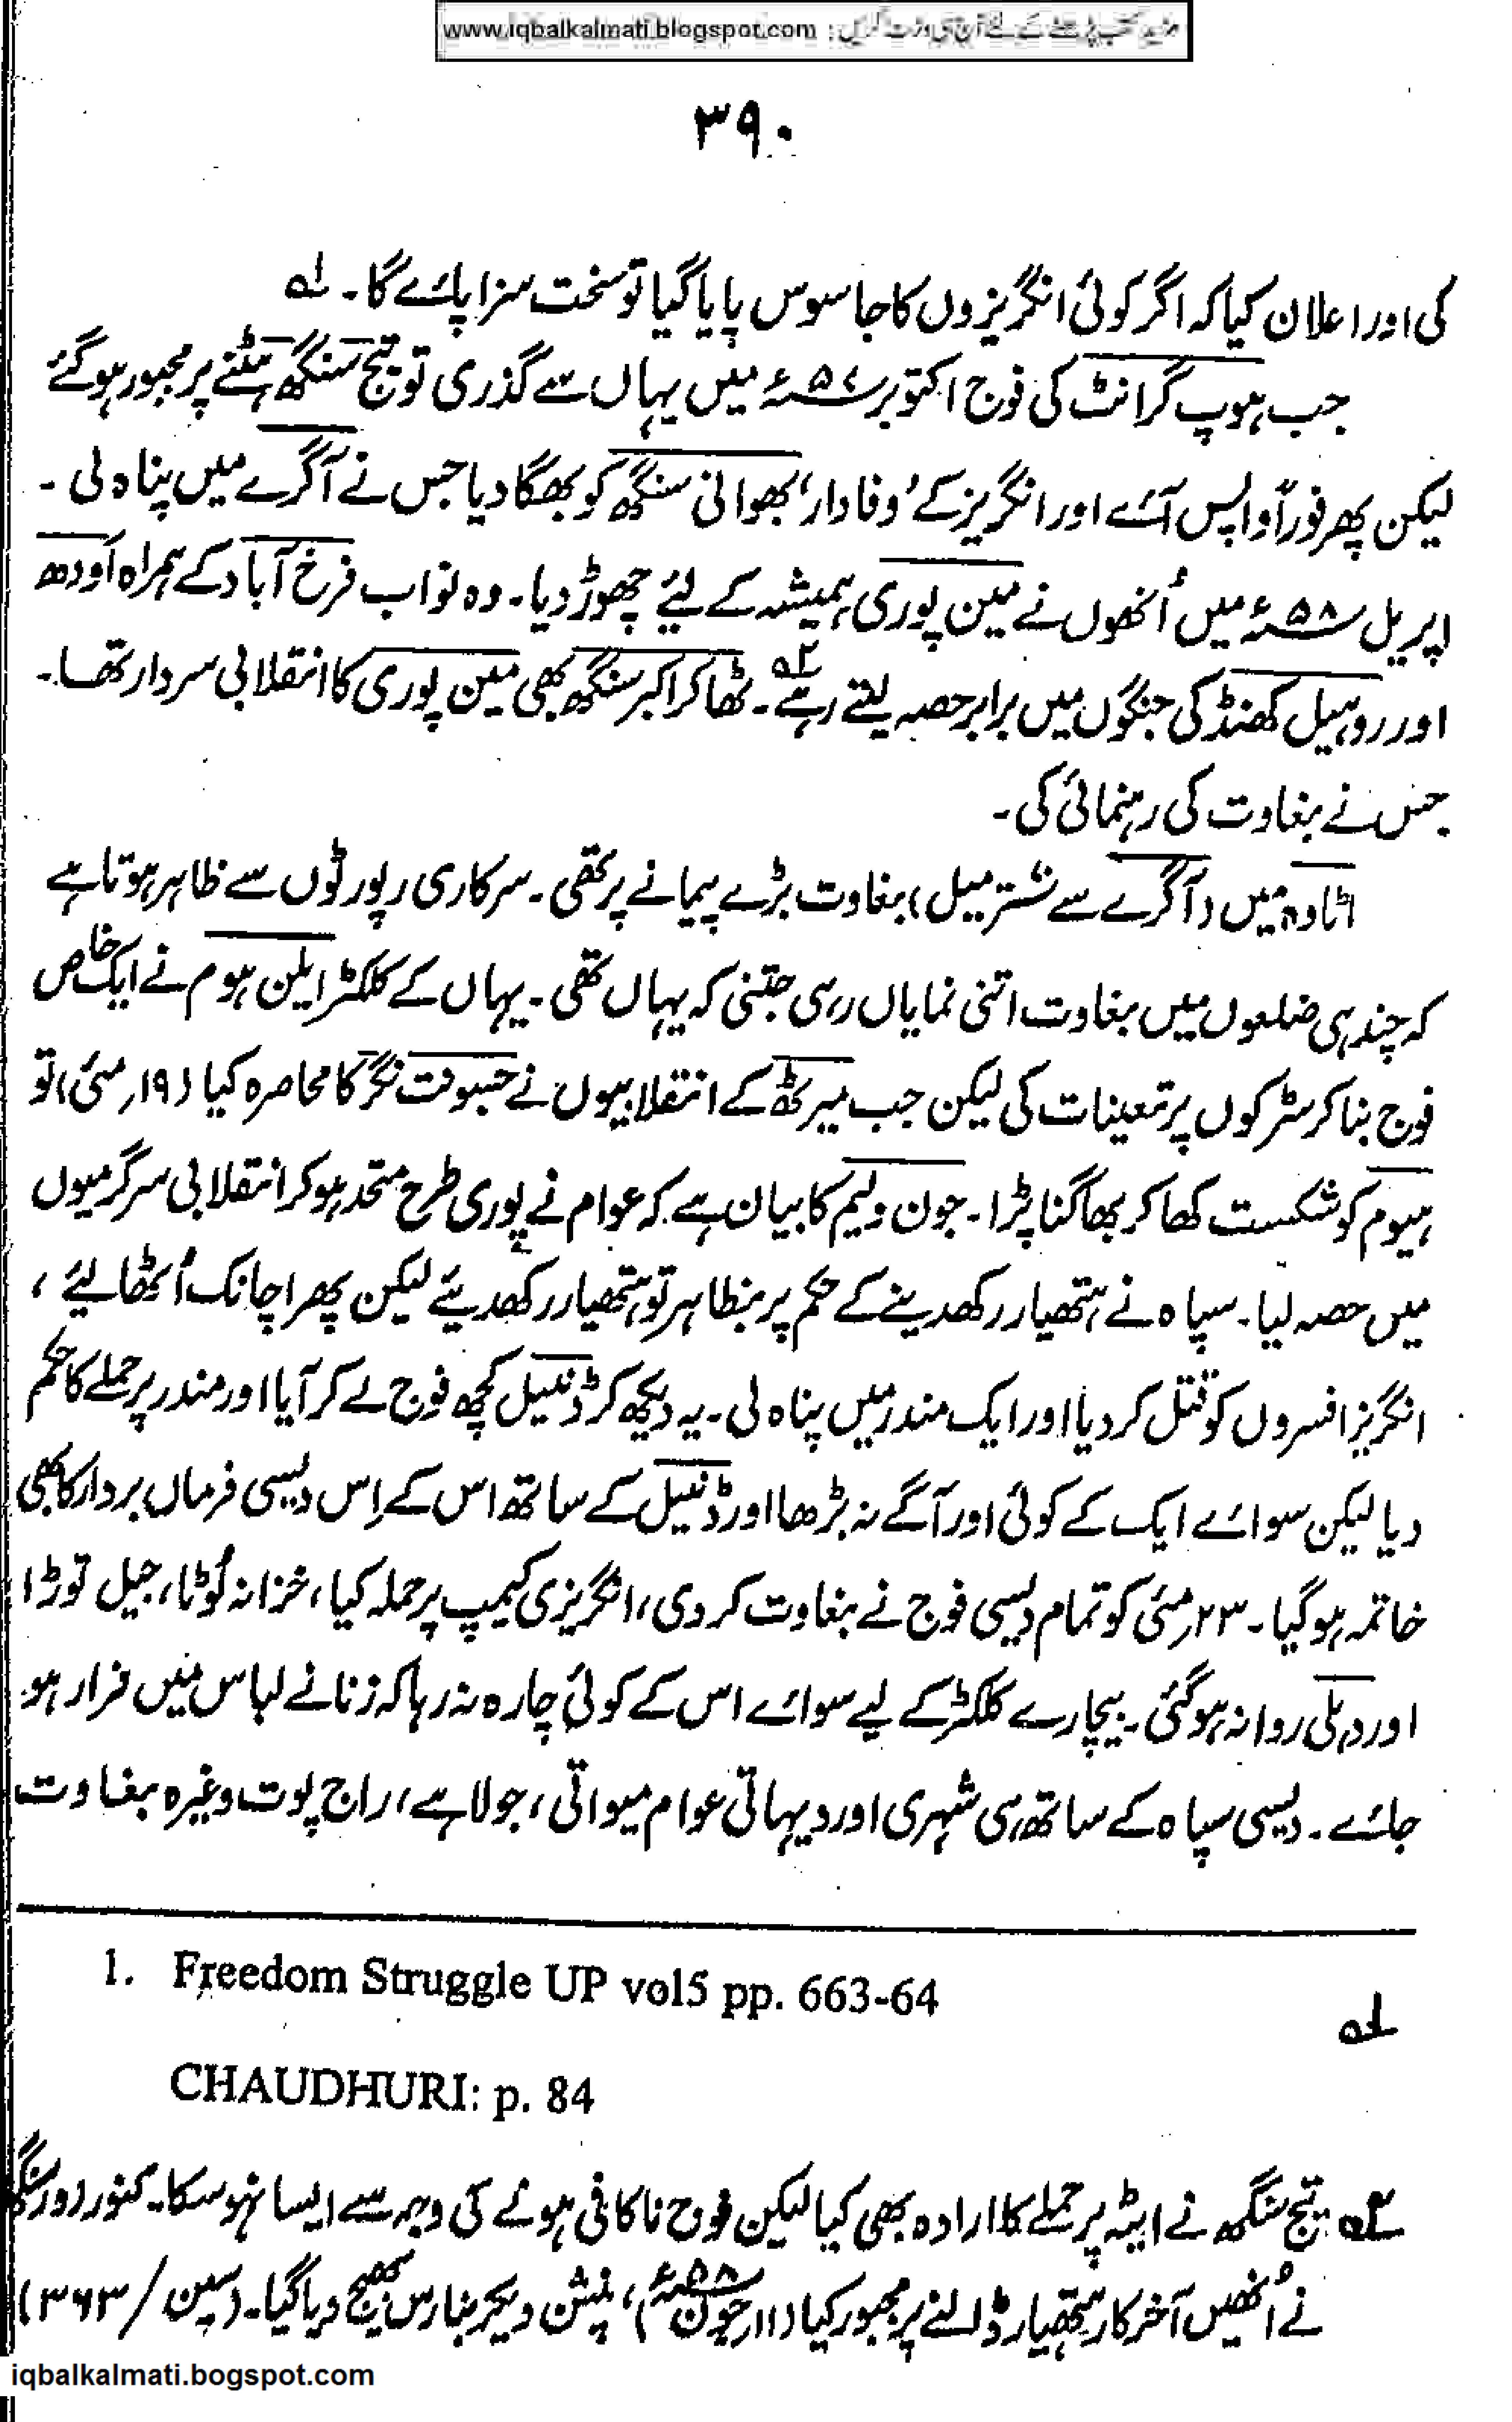 مزید کتب پڑھنے کے لئے آج ہی وزٹ کریں : www.iqbalkalmati.blogspot.com
۳۹۰
کی اور اعلان کیا کہ اگر کوئی انگریزوں کا جاسوس پایا گیا تو سخت سزا پائے گا۔ ۱ھ
جب ہوپ گرانٹ کی فوج اکتوبر ۵۷ء میں یہاں سے گذری تو تیج سنگھ ہٹنے پر مجبور ہوگئے
لیکن پھر فوراً واپس آئے اور انگریز کے 'وفادار' بھوانی سنگھ کو بھگا دیا جس نے آگرے میں پناہ لی ۔
اپریل ۵۸ء میں اُنھوں نے مین پوری ہمیشہ کے لیئے چھوڑ دیا۔ وہ نواب فرخ آباد کے ہمراہ اَودھ
اور روہیل کھنڈ کی جنگوں میں برابر حصہ لیتے رہے۔ ۲ھ ٹھاکر اکبر سنگھ بھی مین پوری کا انقلابی سردار تھا۔
جس نے بغاوت کی رہنمائی کی۔
اٹاوہ میں (آگرے سے ستّر میل) بغاوت بڑے پیمانے پر تھی۔ سرکاری رپورٹوں سے ظاہر ہوتا ہے
کہ چند ہی ضلعوں میں بغاوت اتنی نمایاں رہی جتنی کہ یہاں تھی۔ یہاں کے کلکٹر ایلن ہوم نے ایک خاص
فوج بنا کر سڑکوں پر تعینات کی لیکن جب میرٹھ کے انقلابیوں نے جسونت نگر کا محاصرہ کیا (۱۹؍مئی) تو
ہیوم کو شکست کھا کر بھاگنا پڑا۔ جون ولیم کا بیان ہے کہ عوام نے پوری طرح متحد ہوکر انقلابی سرگرمیوں
میں حصہ لیا۔ سپاہ نے ہتھیار رکھدینے کے حکم پر بظاہر تو ہتھیار رکھدیئے لیکن پھر اچانک اُٹھا لیئے ،
انگریز افسروں کو قتل کر دیا اور ایک مندر میں پناہ لی۔ یہ دیکھ کر ڈنیل کچھ فوج لے کر آیا اور مندر پر حملے کا حکم
دیا لیکن سوائے ایک کے کوئی اور آگے نہ بڑھا اور ڈنیل کے ساتھ اس کے اِس دیسی فرماں بردار کا بھی
خاتمہ ہوگیا۔ ۲۳؍مئی کو تمام دیسی فوج نے بغاوت کر دی، انگریزی کیمپ پر حملہ کیا، خزانہ لُوٹا، جیل توڑا
اور دہلی روانہ ہوگئی۔ بیچارے کلکٹر کے لیے سوائے اس کے کوئی چارہ نہ رہا کہ زنانے لباس میں فرار ہو
جائے۔ دیسی سپاہ کے ساتھ ہی شہری اور دیہاتی عوام میواتی، جولاہے، راج پوت وغیرہ بغاوت
1. Freedom Struggle UP vol5 pp. 663-64
۱ھ
CHAUDHURI: p. 84
۲ھ تیج سنگھ نے ایٹہ پر حملے کا ارادہ بھی کیا لیکن فوج ناکافی ہونے کی وجہ سے ایسا نہوسکا۔ کنور زور سنگھ
نے اُنھیں آخرکار ہتھیار ڈالنے پر مجبور کیا (۱۱؍جون ۵۸ء)، پنشن دیکر بنارس بھیج دیا گیا۔ (سین / ۳۶۳)
iqbalkalmati.bogspot.com